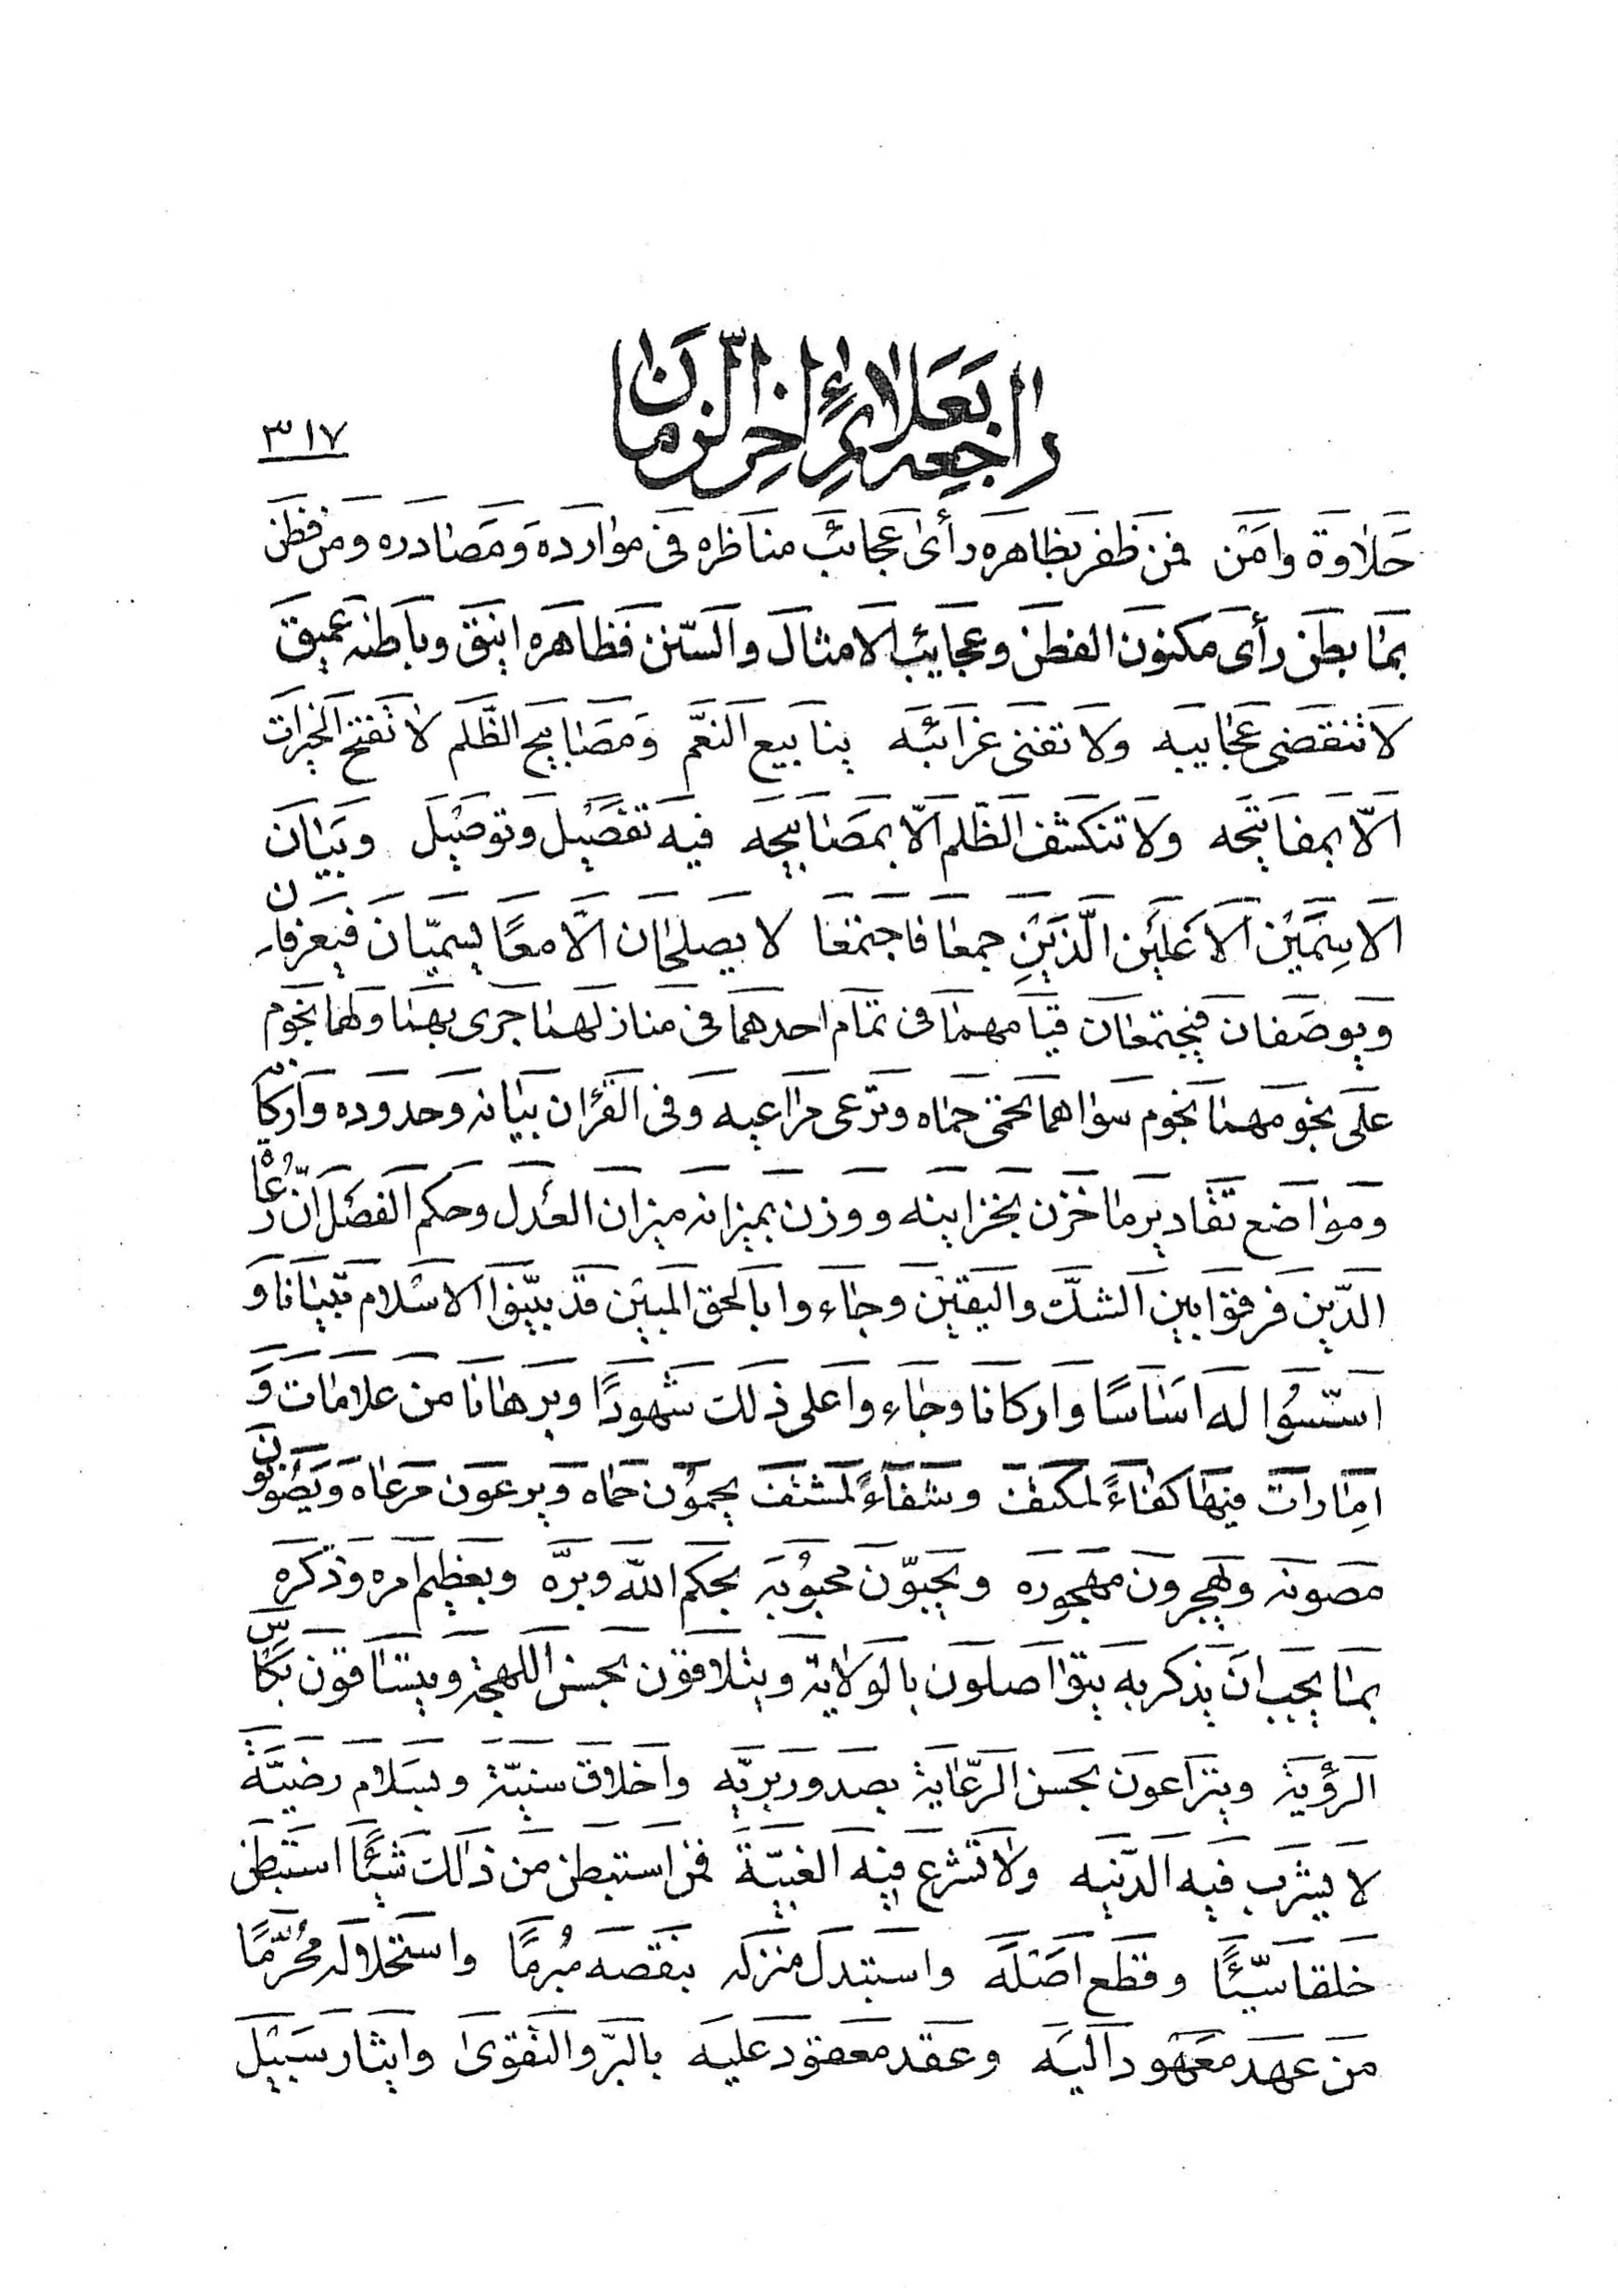 راجعه بعلائم اخر الزمان
٣١٧
حلاوة وامن فمن ظفر بظاهره رأى عجائب مناظره فى موارده ومصادره ومن فطن
بما بطن رأى مكنون الفطن وعجايب الامثال والسنن فظاهره انيق وباطنه عميق
لا تنقضى عجايبه ولا تفنى غرائبه ينابيع النعم ومصابيح الظلم لا تفتح الخيرات
الا بمفاتيحه ولا تنكشف الظلم الا بمصابيحه فيه تفصيل وتوصيل وبيان
الاسمين الاعلين الذين جمعا فاجتمعا لا يصلحان الا معا يسميان فيعرفان
ويوصفان فيجتمعان قيامهما فى تمام احدهما فى منازلهما جرى بهما ولهما نجوم
على نجومهما نجوم سواهما تحمى حماه وترعى مراعيه وفى القرءان بيانه وحدوده واركانه
ومواضع تقادير ما خزن بخزاينه ووزن بميزانه ميزان العدل وحكم الفصل ان رعاة
الدين فرقوا بين الشك واليقين وجاءوا بالحق المبين قد بينوا الاسلام تبيانا و
اسسوا له اساسا واركانا وجاءوا على ذلك شهودا وبرهانا من علامات و
امارات فيها كفاء لمكتف وشفاء لمشتف يحمون حماه ويرعون مرعاه ويصونون
مصونه ويهجرون مهجوره ويحبون محبوبه بحكم الله وبره وبعظيم امره وذكره
بما يجب ان يذكر به يتواصلون بالولاية ويتلاقون بحسن اللهجة ويتساقون بكأس
الرؤية ويتراعون بحسن الرعاية بصدور بريه واخلاق سنية وبسلام رضية
لا يشرب فيه الدنيه ولا تشرع فيه الغيبة فمن استبطن من ذالك شيئا استبطن
خلقا سيئا وقطع اصله واستبدل منزله بنقصه مبرما واستحلاله محرما
من عهد معهود اليه وعقد معقود عليه بالبر والتقوى وايثار سبيل